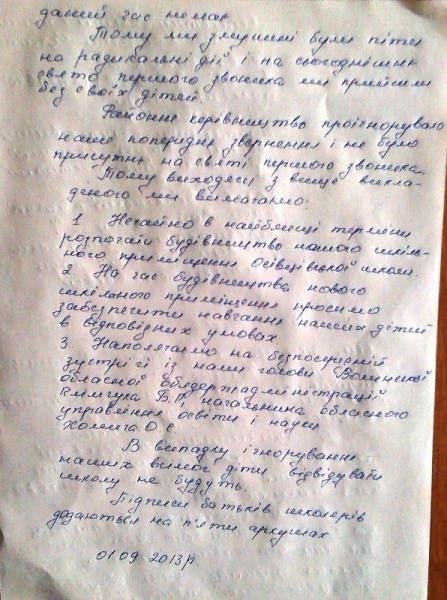 даний час немає.
Тому ми змушені були піти
на радикальні дії і на сьогоднішнє
свято першого звоника ми прийшли
без своїх дітей.
Районне керівництво проігнорувало
наше попереднє звернення і не було
присутнє на святі першого звоника.
Тому виходячи з вище викла-
деного ми вимагаємо:
1 Негайно в найближчі терміни
розпочати будівництво нового шкіль-
ного приміщення Осівецької школи.
2. На час будівництва нового
шкільного приміщення просимо
забезпечити навчання наших дітей
в відповідних умовах.
3. Наполягаємо на безпосередній
зустрічі із нами голови Волинської
обласної облдержадміністрації
Климчука В.П начальника обласного
управління освіти і науки
Хомича О.С.
В випадку ігнорування
наших вимог діти відвідувати
школу не будуть.
Підписи батьків школярів
додаються на п'яти аркушах
01.09 2013р.